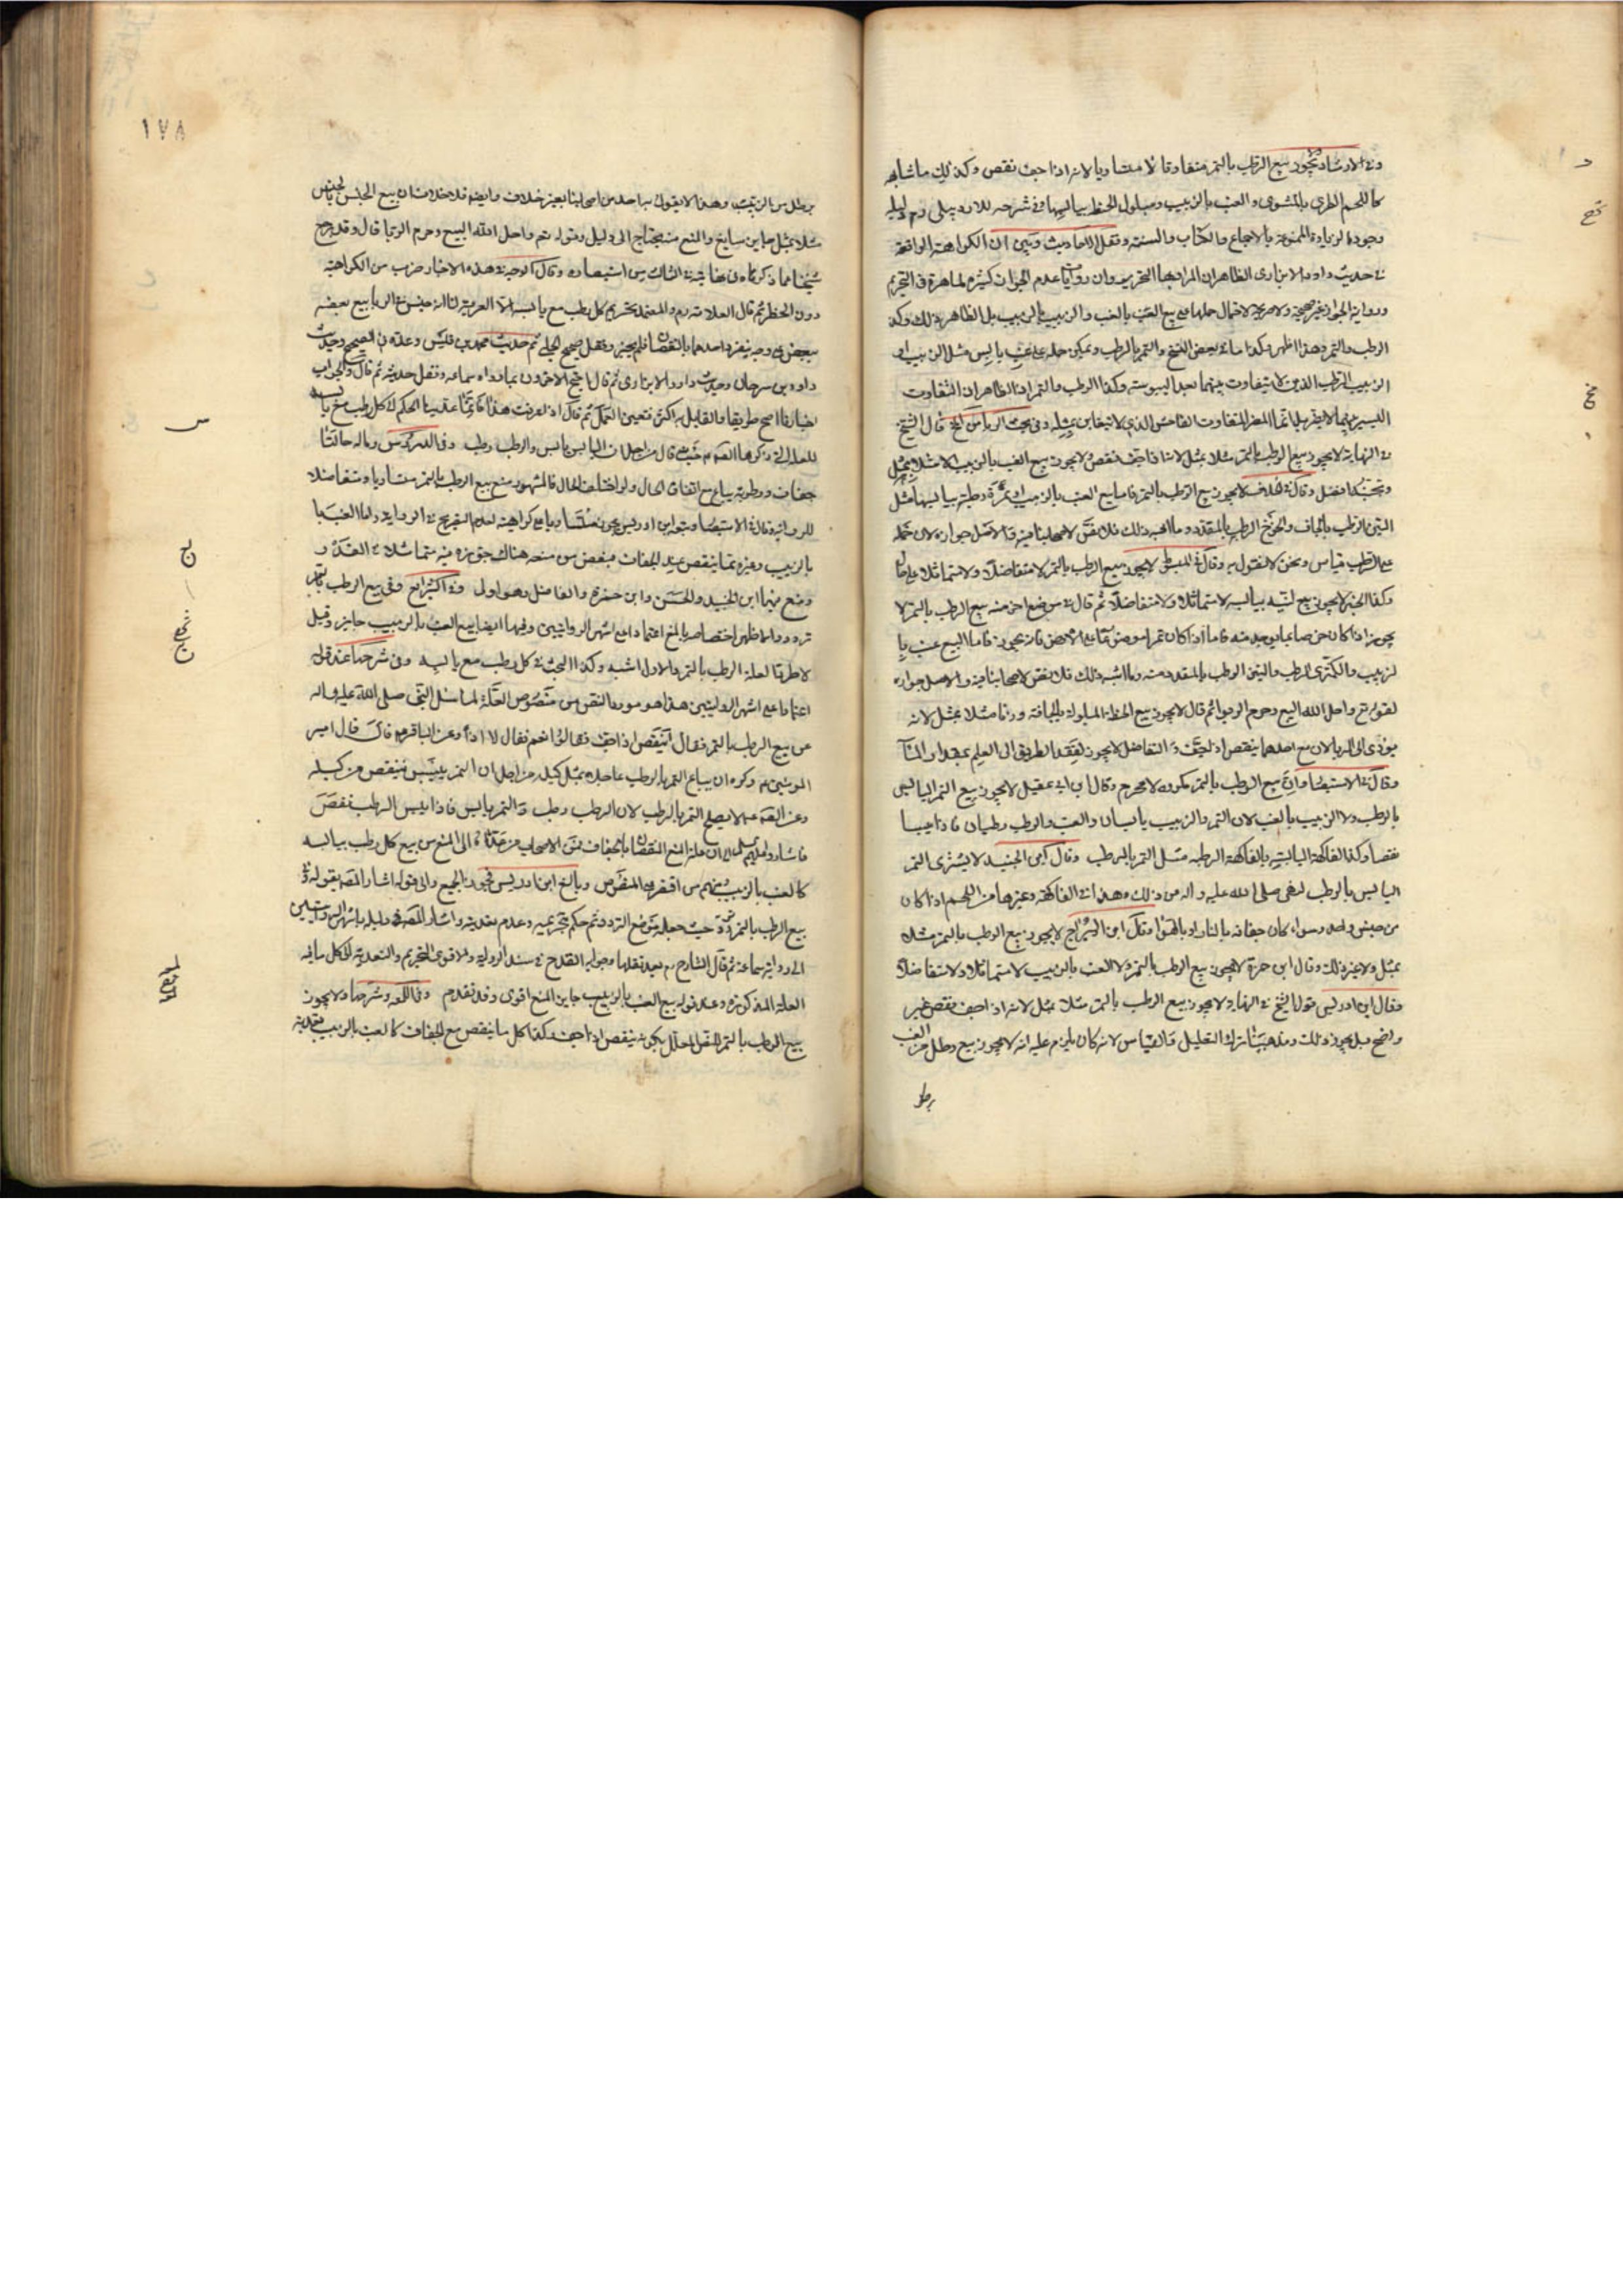 وفي الارشاد ولا يجوز بيع الرطب بالتمر متفاوتا ولا متساويا لانه اذا جف نقص وكذلك ما شابهه
كاللحم الطري بالمشوي والعنب بالزبيب ومبلول الحنطة بيابسها وفي شرحه للاردبيلي دليله
وجود الزيادة الممنوعة بالاجماع والكتاب والسنة ونقل الاحاديث وبين ان الكراهة الواقعة
في حديث داود الابزاري الظاهر ان المراد بها التحريم وان روايات عدم الجواز كثيرة ظاهرة في التحريم
ورواية الجواز غير صحيحة ولا صريحة لاحتمال حملها مع بيع العنب بالعنب والزبيب بالزبيب بل الظاهر ذلك وكذا
الرطب والتمر وهذا اظهر وكذا ما في بعض النسخ والتمر بالرطب ويمكن حمله على عنب يابس مثل الزبيب او
الزبيب الرطب الذين لا يتفاوت بينهما بعد اليبوسة وكذا الرطب والتمر اذ الظاهر ان التفاوت
اليسير بينهما لا يضر بل انما المضر المتفاوت الفاحش الذي لا يتغابن بمثله وفي بحث الربا من لخ قال الشيخ
في النهاية لا يجوز بيع الرطب بالتمر مثلا بمثل لانه اذا جف نقص ولا يجوز بيع العنب بالزبيب الا مثلا بمثل
وتجنبه افضل وقال في الخلاف لا يجوز بيع الرطب بالتمر فاما بيع العنب بالزبيب او ثمرة رطبة بيابسها مثل
التين الرطب بالجاف والخوخ الرطب بالمقدد وما اشبه ذلك فلا نص لاصحابنا فيه فالاصل جوازه لان حمله
على الرطب قياس ونحن لا نقول به وقال في المبسوط لا يجوز بيع الرطب بالتمر لا متفاضلا ولا متماثلا على حال
وكذا الخبز لا يجوز بيع لينه بيابسه لا متماثلا ولا متفاضلا ثم قال في موضع اخر منه بيع الرطب بالتمر لا
يجوز اذا كان خرصا مما يوجد منه فاما اذا كان تمرا موضوعا على الارض فانه يجوز فاما البيع عنب با
لزبيب والكمثرى الرطب والتين الرطب بالمقدد منه وما اشبه ذلك فلا نص لاصحابنا فيه والاصل جوازه
لقوله تع واحل الله البيع وحرم الربوا ثم قال لا يجوز بيع الحنطة المبلولة بالجافة وزنا مثلا بمثل لانه
يؤدي الى الربا لان مع احدهما ينقص اذا جف والتفاضل لا يجوز لفقد الطريق الى العلم بمقدار الماء
وقال في الاستبصار ان بيع الرطب بالتمر مكروه لا محرم وقال ابن ابي عقيل لا يجوز بيع التمر اليابس
بالرطب ولا الزبيب بالعنب لان التمر والزبيب يابسان والعنب والرطب رطبان فاذا يبسا
نقصا وكذا الفاكهة اليابسة بالفاكهة الرطبة مثل التمر بالرطب وقال ابن الجنيد لا يشترى التمر
اليابس بالرطب لنهي صلى الله عليه واله من ذلك وهذا في الفاكهة وغيرها من اللحم اذا كان
من جنس واحد وسواء كان جفافه بالنار او بالهواء وقال ابن البراج لا يجوز بيع الرطب بالتمر مثلا
بمثل ولا غير ذلك وقال ابن حمزة لا يجوز بيع الرطب بالتمر ولا العنب بالزبيب لا متماثلا ولا متفاضلا
وقال ابن ادريس قول الشيخ في النهاية ولا يجوز بيع الرطب بالتمر مثلا بمثل لانه اذا جف نقص غير
واضح بل يجوز ذلك ومذهبنا ترك التعليل والقياس لانه كان يلزم عليه انه لا يجوز بيع رطل من العنب
برطل
١٧٨
برطل من الزبيب وهذا لا يقول به احد من اصحابنا بغير خلاف وايضا فلا خلاف ان بيع الجنس بالجنس
مثلا بمثل جايز سايغ والمنع منه يحتاج الى دليل وقوله تع واحل الله البيع وحرم الربا قال وقد رجع
شيخنا عما ذكره في نهايته في الثالث من استبصاره وقال الوجه في هذه الاخبار ضرب من الكراهة
دون الحظر ثم قال العلامة ره والمعتمد تحريم كل رطب مع يابسه الا العرية لنا انه جنس في الربا بيع بعضه
ببعض على وجه ينفرد احدهما بالنقصان فلم يجز ونقل صحيح الحلبي ثم حديث محمد بن قيس وعده في الصحيح وحديث
داود بن سرحان وحديث داود الابزاري ثم قال احتج الاخرون بما رواه سماعة ونقل حديثه ثم قال والجواب
اخبارنا اصح طريقا والقايل به اكثر فتعين العمل ثم قال اذا عرفت هذا فانما عدينا الحكم الى كل رطب مع يابسه
للعلة التي ذكرها الصم ع حيث قال من اجل ان اليابس يابس والرطب رطب وفي الدروس وما له حالتا
جفاف ورطوبة يباع مع اتفاق الحال ولو اختلف الحال فالمشهور منع بيع الرطب بالتمر متساويا ومتفاضلا
للرواية وقال في الاستبصار وتبعه ابن ادريس يجوز متساويا مع كراهية لعدم التصريح في الرواية واما العنب با
لزبيب وغيره مما ينقص عند الجفاف فبعض من منعه هناك جوزه فيه متماثلا في القدر و
ومنع منهما ابن الجنيد والحسن وابن حمزة والفاضل وهو اولى وفي الشرايع وفي بيع الرطب بالتمر
تردد والاظهر اختصاصه بالمنع اعتمادا على اشهر الروايتين وفيها ايضا بيع العنب بالزبيب جايز وقيل
لا طردا لعلة الرطب بالتمر والاول اشبه وكذا البحث في كل رطب مع يابسه وفي شرحها عند قوله
اعتمادا على اشهر الروايتين هذا هو مورد النص من منصوص العلة لما سئل النبي صلى الله عليه واله
عن بيع الرطب بالتمر فقال اينقص اذا جف فقالوا نعم فقال لا اذا وعن الباقر ع قال قال امير
المومنين ع وكره ان يباع التمر بالرطب عاجلا بمثل كيله من اجل ان التمر ييبس فينقص من كيله
وعن الصم ع لا يصلح التمر بالرطب لان الرطب رطب والتمر يابس فاذا يبس الرطب نقص
فاشاروا عليهم السلام الى ان علة المنع النقصان بالجفاف فمن الاصحاب من عداه الى المنع من بيع كل رطب بيابسه
كالعنب بالزبيب ومنهم من اقتصر على المنصوص وبالغ ابن ادريس فجوز الجميع والى قوله اشار المص بقوله وفي
بيع الرطب بالتمر تردد حيث جعله موضع التردد ثم حكم بتحريمه وعدم تعديته واشار المص في دليله باشهر الروايتين
الى رواية سماعة ثم قال الشارح ره بعد نقلها وجوابه القدح في سند الرواية والاقوى التحريم والتعدية الى كل ما فيه
العلة المذكورة وعند قوله بيع العنب بالزبيب جايز المنع اقوى وقد تقدم وفي اللمعة وشرحها ولا يجوز
بيع الرطب بالتمر للنقل المعلل بكونه ينقص اذا جف وكذا كل ما ينقص مع الجفاف كالعنب بالزبيب تعدية